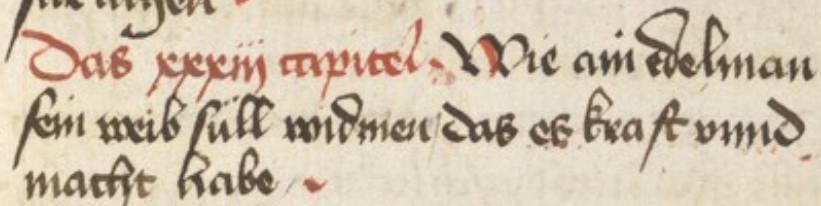 Das xxxiij capitel. Wie ain edelman
sein weib süll widmen / das es kraft vnnd
macht habe /.